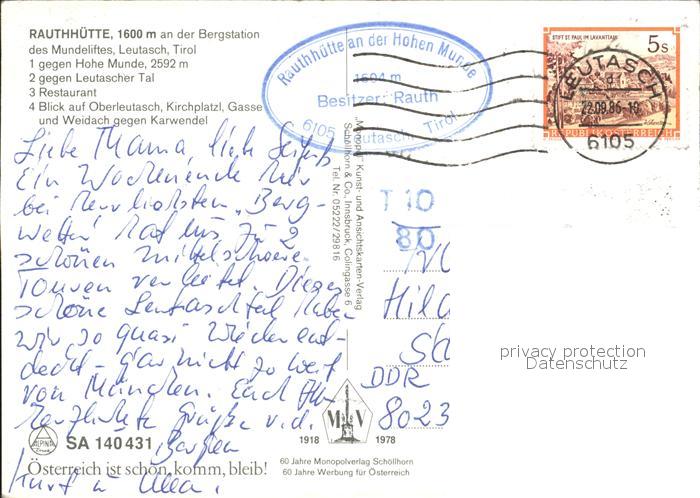 RAUTHHÜTTE, 1600 m an der Bergstation
des Mundeliftes, Leutasch, Tirol
1 gegen Hohe Munde, 2592 m
2 gegen Leutascher Tal
3 Restaurant
4 Blick auf Oberleutasch, Kirchplatzl, Gasse
und Weidach gegen Karwendel
Rauthhütte an der Hohen Munde
1604 m
Besitzer: Rauth
6105 Leutasch, Tirol
STIFT ST. PAUL IM LAVANTTAL
5s
REPUBLIK ÖSTERREICH
LEUTASCH
22.09.86-18
6105
Liebe Mama
Ein Wochenende hier
bei herrlichstem „Berg-
wetter" hat uns zu 2
schönen mittelschwere
Touren verleitet. Dieses
schöne Leutaschtal haben
wir so quasi wiederent-
deckt - gar nicht so weit
von München. Euch
herzlichste Grüße v. d.
Bergen
Kurt u
„Monopol" Kunst- und Ansichtskarten-Verlag
Schöllhorn & Co., Innsbruck, Colingasse 6
Tel. Nr. 05222/29816
T 10
80
Hil
DDR
8023
privacy protection
Datenschutz
ALPINA
SA 140 431
Österreich ist schön, komm, bleib!
M V
1918 1978
60 Jahre Monopolverlag Schöllhorn
60 Jahre Werbung für Österreich